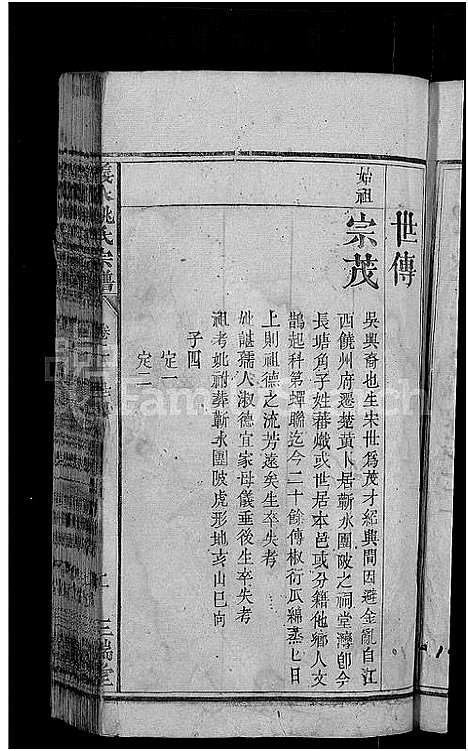 世傳
始祖
宗茂
吳興裔也生宋世爲茂才紹興間因避金亂自江
西饒州府遷楚黃卜居蘄水團陂之祠堂灣卽今
長塘角子姓蕃熾或世居本邑或分籍他鄉人文
鵲起科第蟬聯迄今二十餘傳椒衍瓜綿蒸七日
上則祖德之流芳遠矣生卒失考
妣諶孺人淑德宜家母儀垂後生卒失考
祖考妣祔葬蘄水團陂虎形地亥山巳向
子四
定一
定二
姚氏宗譜
卷二
三瑞堂